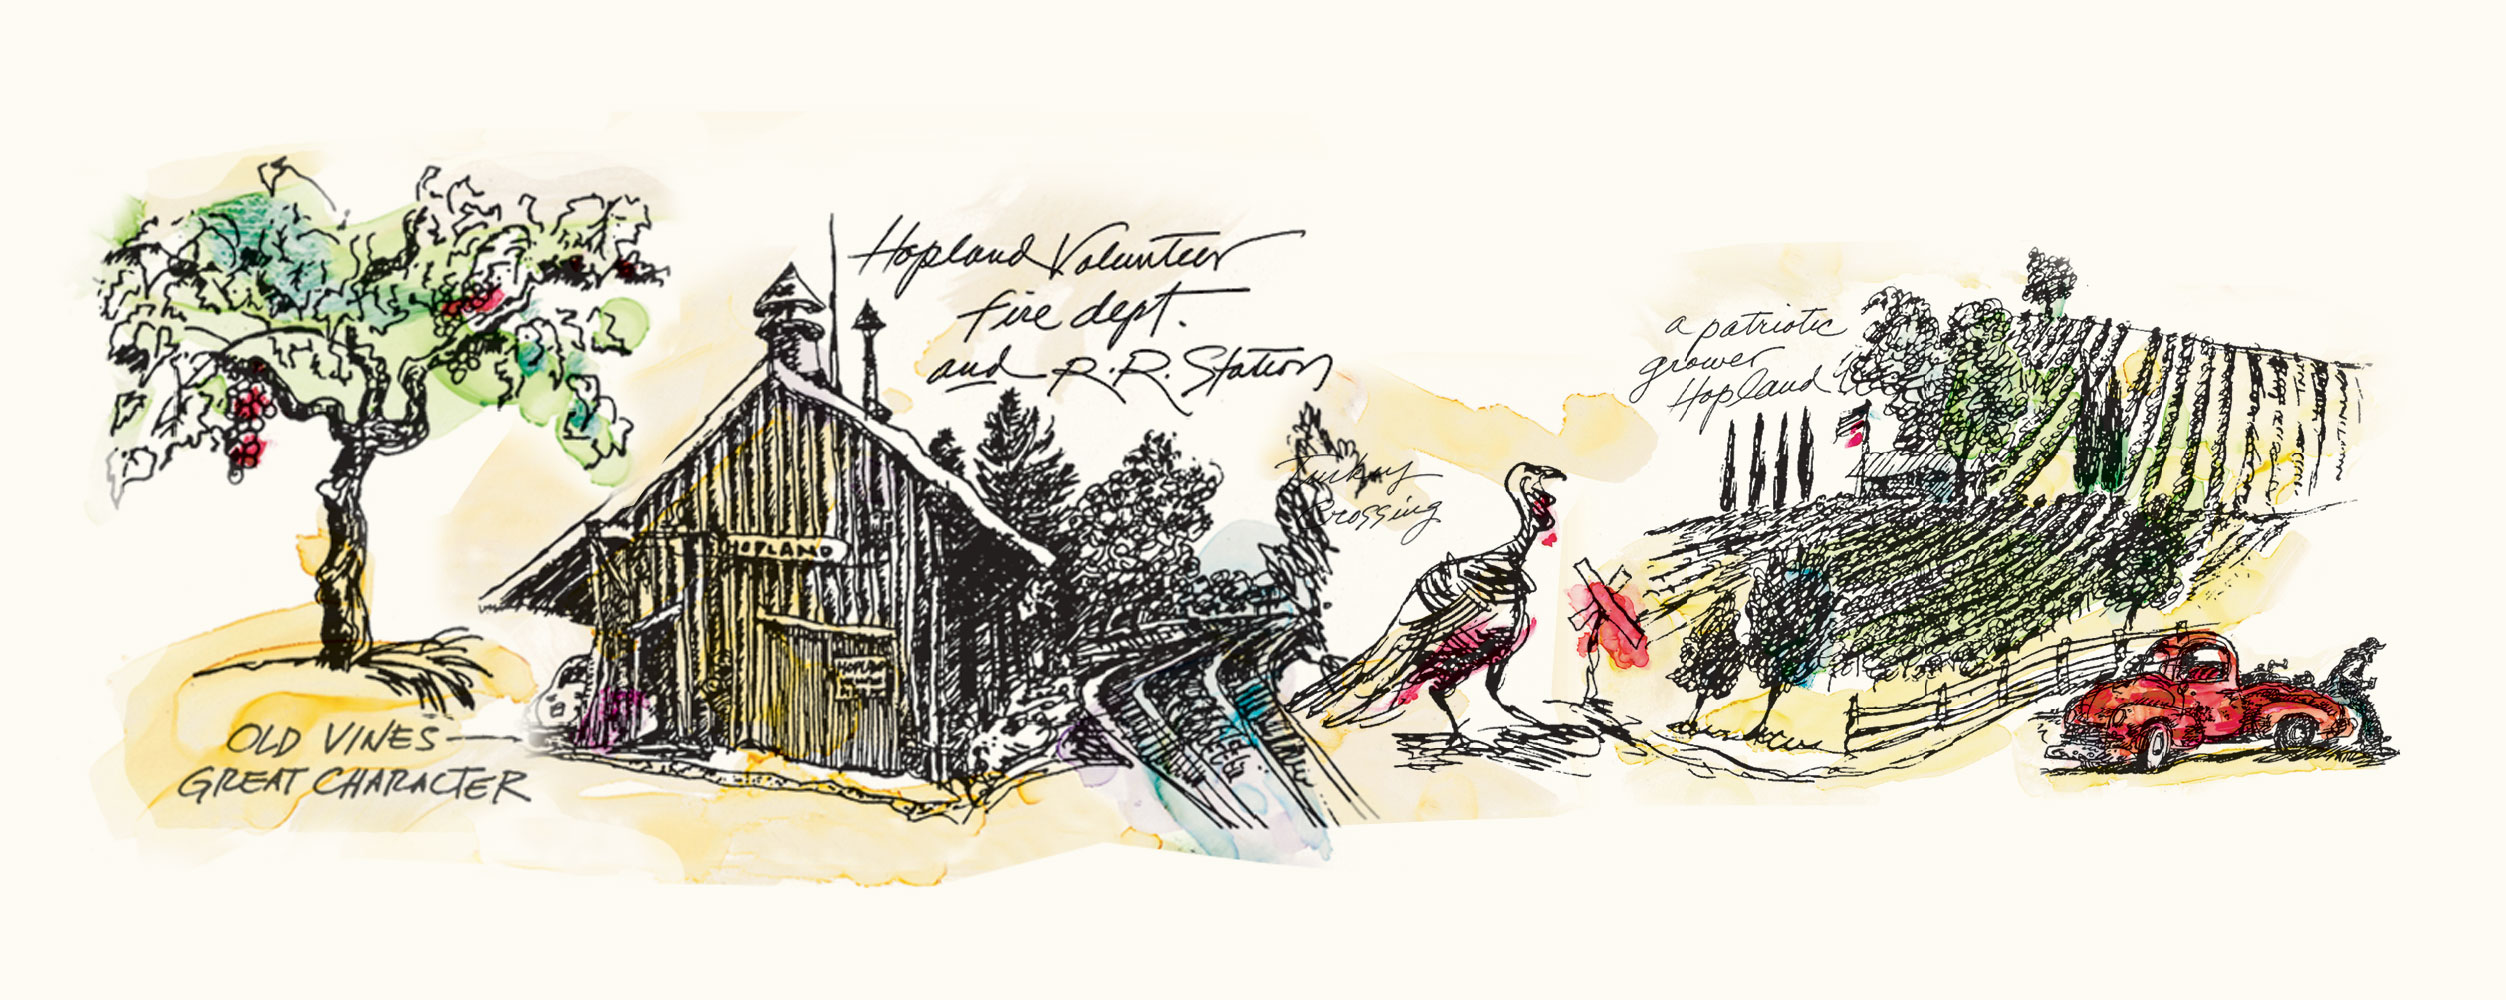 OLD VINES—
GREAT CHARACTER
Hopland Volunteer
fire dept.
and R.R. Station
HOPLAND
HOPLAND
Turkey
Crossing
a patriotic
grower
Hopland